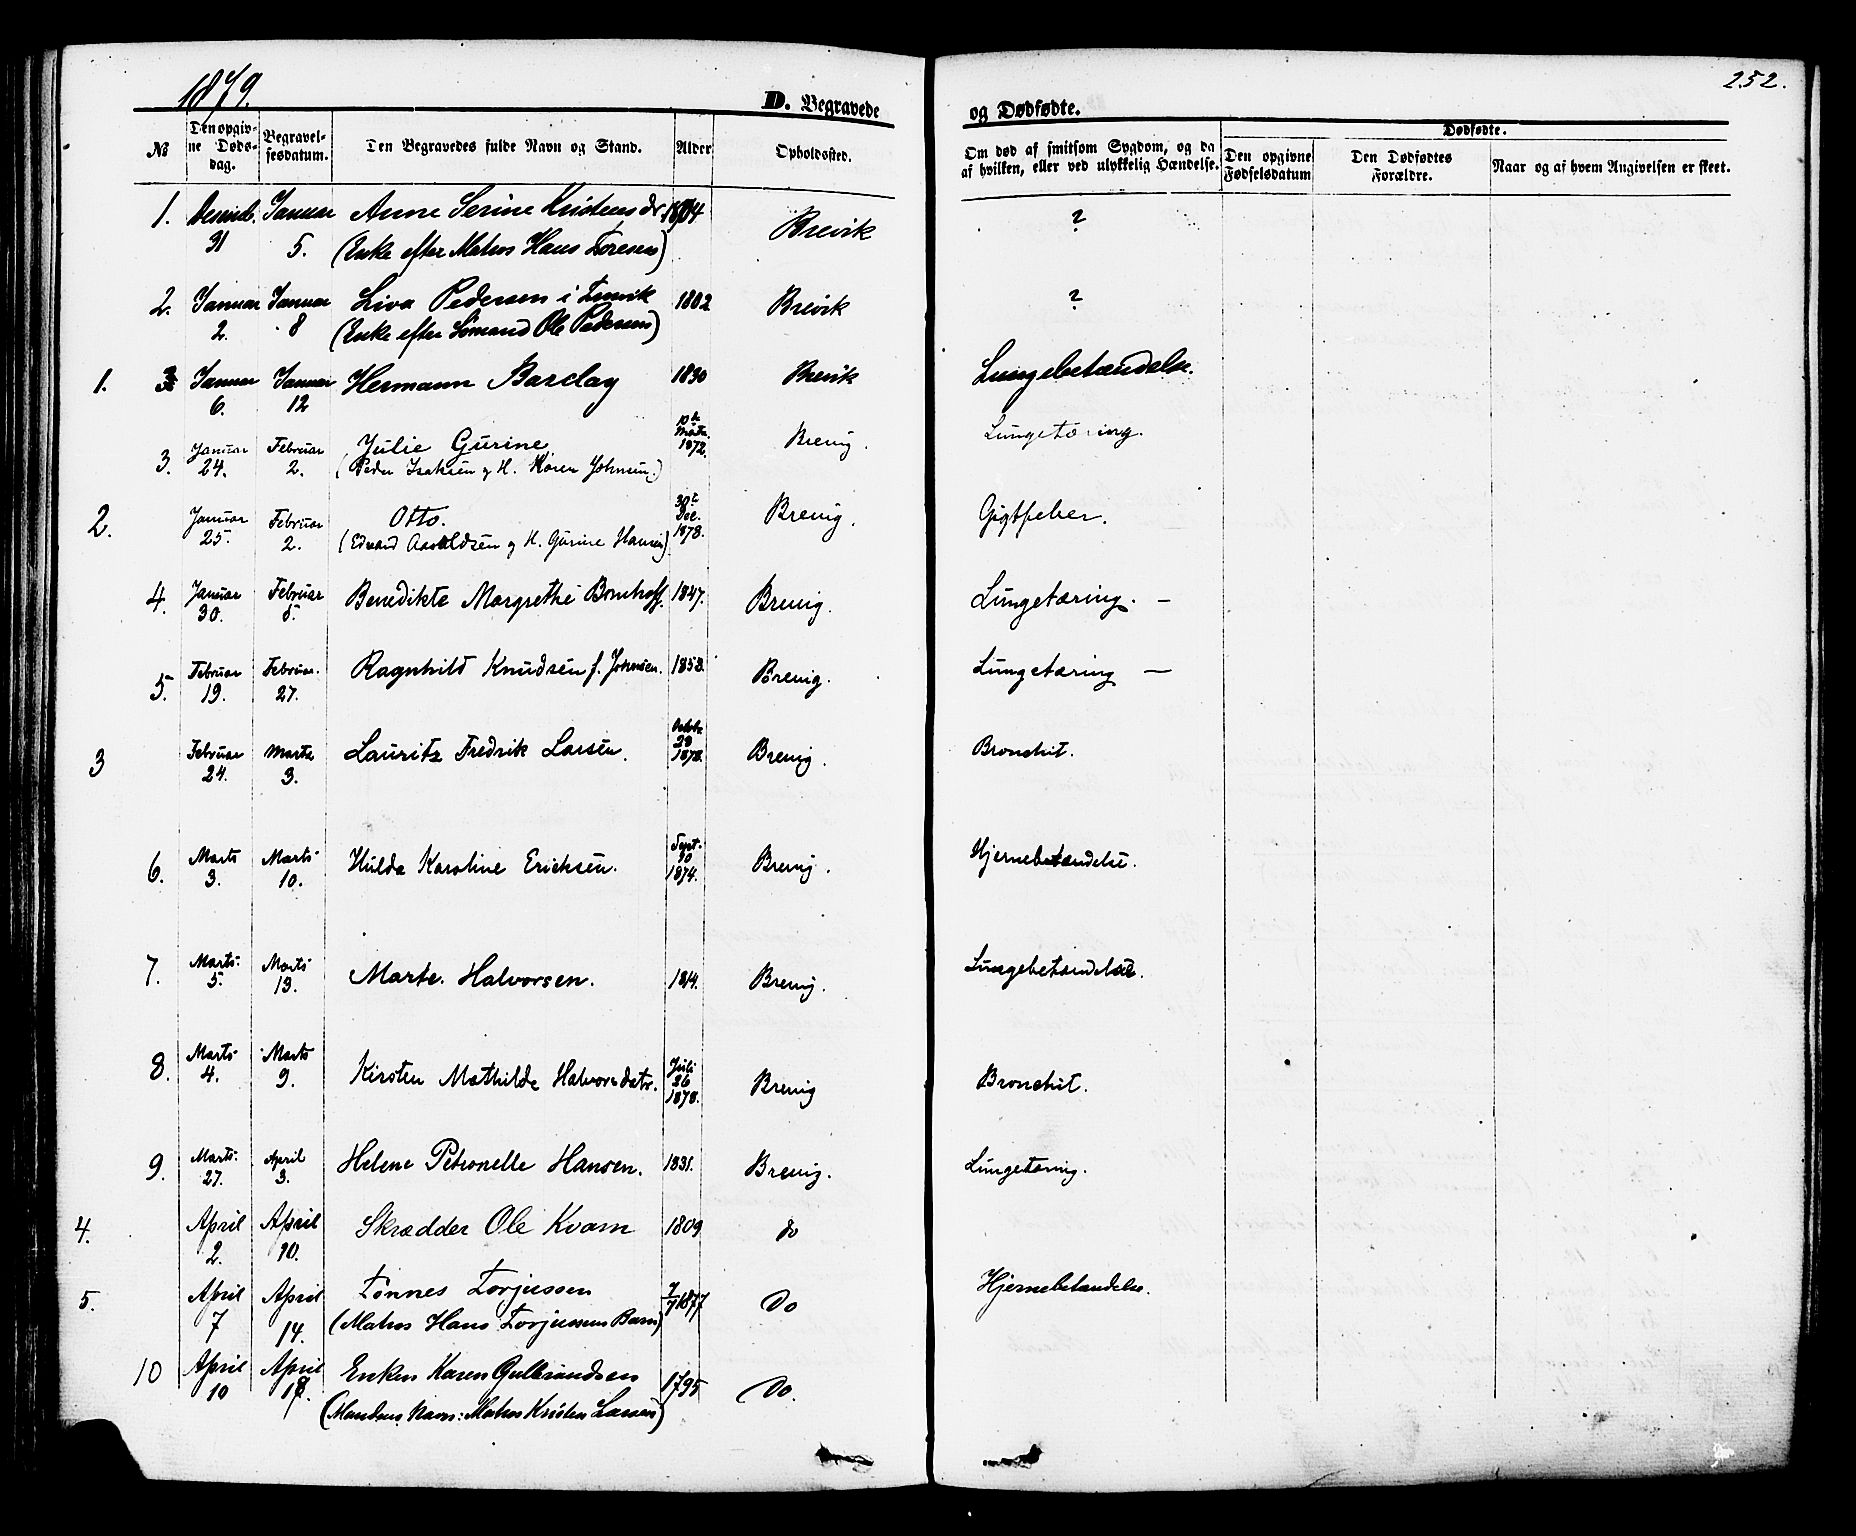 1879.
252.
D. Begravede og Dødfødte.
№ | Den opgivne Døds-dag. | Begravelsesdatum. | Den Begravedes fulde Navn og Stand. | Alder | Opholdssted. | Om død af smitsom Sygdom, og da af hvilken, eller ved ulykkelig Hændelse. | Dødfødte. | Den opgivne Fødselsdatum | Den Dødfødtes Forældre. | Naar og af hvem Angivelsen er skeet.
1. Decemb. 31 Januar 5. Anne Serine Kristensdr. 1804 Brevik ?
(Enke efter Matros Hans Toresen)
2. Januar 2. Januar 8 Liva Pedersen (Enke efter Sømand Ole Pedersen) 1802 Brevik ?
1. Januar 6. Januar 12 Hermann Barclay 1830 Brevik Lungebetændelse.
3. Januar 24. Februar 2. Julie Gurine 1872. Brevig. Lungetæring.
(Peder Isaksen og H. Karen Johnsen)
2. Januar 25. Februar 2. Otto. 30te Dec. 1878. Brevig. Gigtfeber.
(Edvard H. Gurine Hansen)
4. Januar 30. Februar 5. Benedikte Margrethe Bomhoff. 1847. Brevig. Lungetæring. —
5. Februar 19. Februar. 27. Ragnhild Knudsen f. Johnsen. 1853. Brevig. Lungetæring —
3 Februar 24. Marts 3. Lauritz Fredrik Larsen. Octobr. 28 1878. Brevig. Bronchit.
6. Marts 3. Marts 10. Hulda Karoline Ericksen. Sept. 10 1874. Brevig. Hjernebetændelse.
7. Marts 5. Marts 13. Marte Halvorsen. 1814. Brevig. Lungebetændelse.
8. Marts 4. Marts 9. Kirsten Mathilde Halvorsdatr. Juli 26 1878. Brevig Bronchit.
9. Marts 27. April 3. Helene Petronelle Hansen. 1831. Brevig. Lungetæring.
4. April 2. April 10. Skrædder Ole Kvam 1809 do
5. April 7 April 14. Tønnes Torjussen 1877 Do Hjernebetændelse.
(Matros Hans Torjussens Barn)
10 April 10 April 18. Enken Karen Gulbrandsen 1795 Do.
(Mandens Navn: Matros Kristen Larsen)